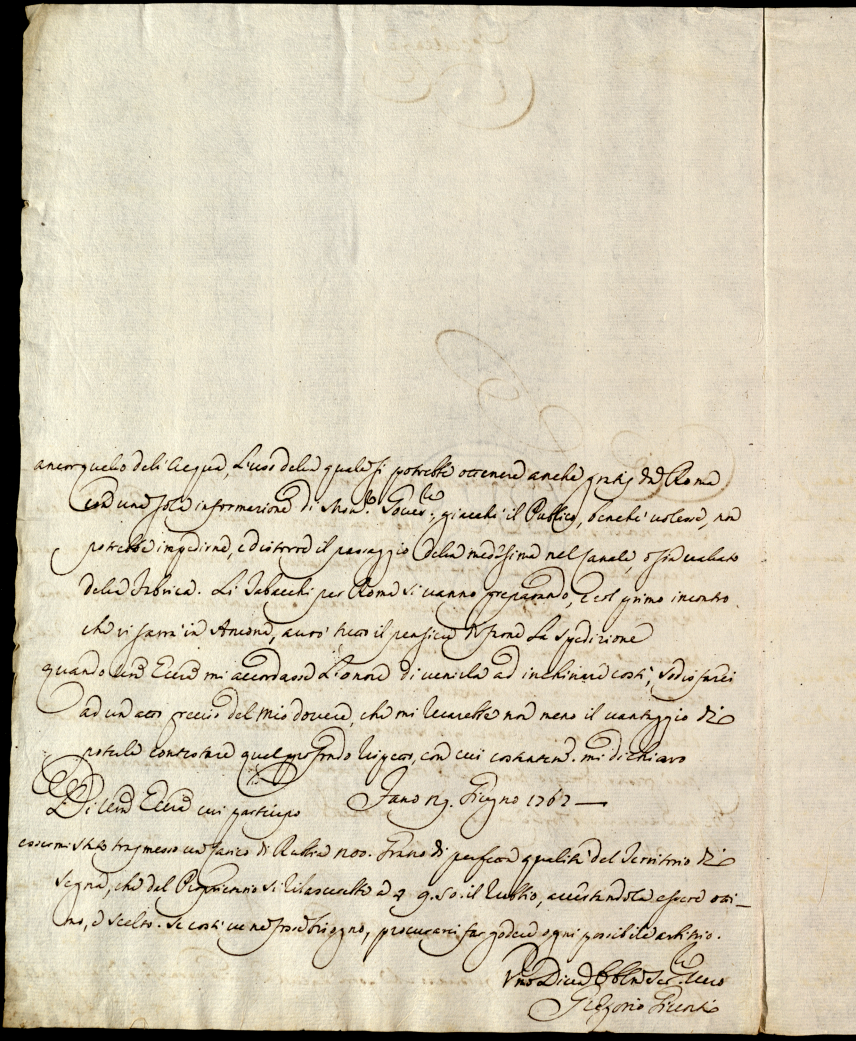 ancor quello dell'Acqua, L'uso della quale si potrebbe ottenere anche gratis da Roma
con una sola informazione di Mon.r Gover.re, giacchè il Publico, benchè volesse, non
potrebbe impedirne, e distorre il passaggio della medesima nel Canale, o sia
della Fabrica. Li Tabacchi per Roma si vanno preparando, e col primo incontro
che vi sarra' in Ancona, avrò tutto il pensiero di farne La spedizione
quando Vra Eccza mi accordasse L'onore di venirla ad inchinare costì, sodisfarei
ad un atto preciso del mio dovere, che mi recarebbe non meno il vantaggio di
poterle contestare quel profondo rispetto, con cui costantem. mi dichiaro
Di Vra Eccza cui partecipo Fano Giugno 1762
essermi stato trasmesso un Carico di Rubbia Grano di perfetta qualità del Territorio di
che dal Proprietario si rilasciarebbe a 50. il Rubbio, essere otti-
mo, e scelto. Se costì ve ne fosse bisogno, procurarei far godere ogni possibile arbitrio.
Vmo Divmo Obblmo Ser.re vero
Gregorio